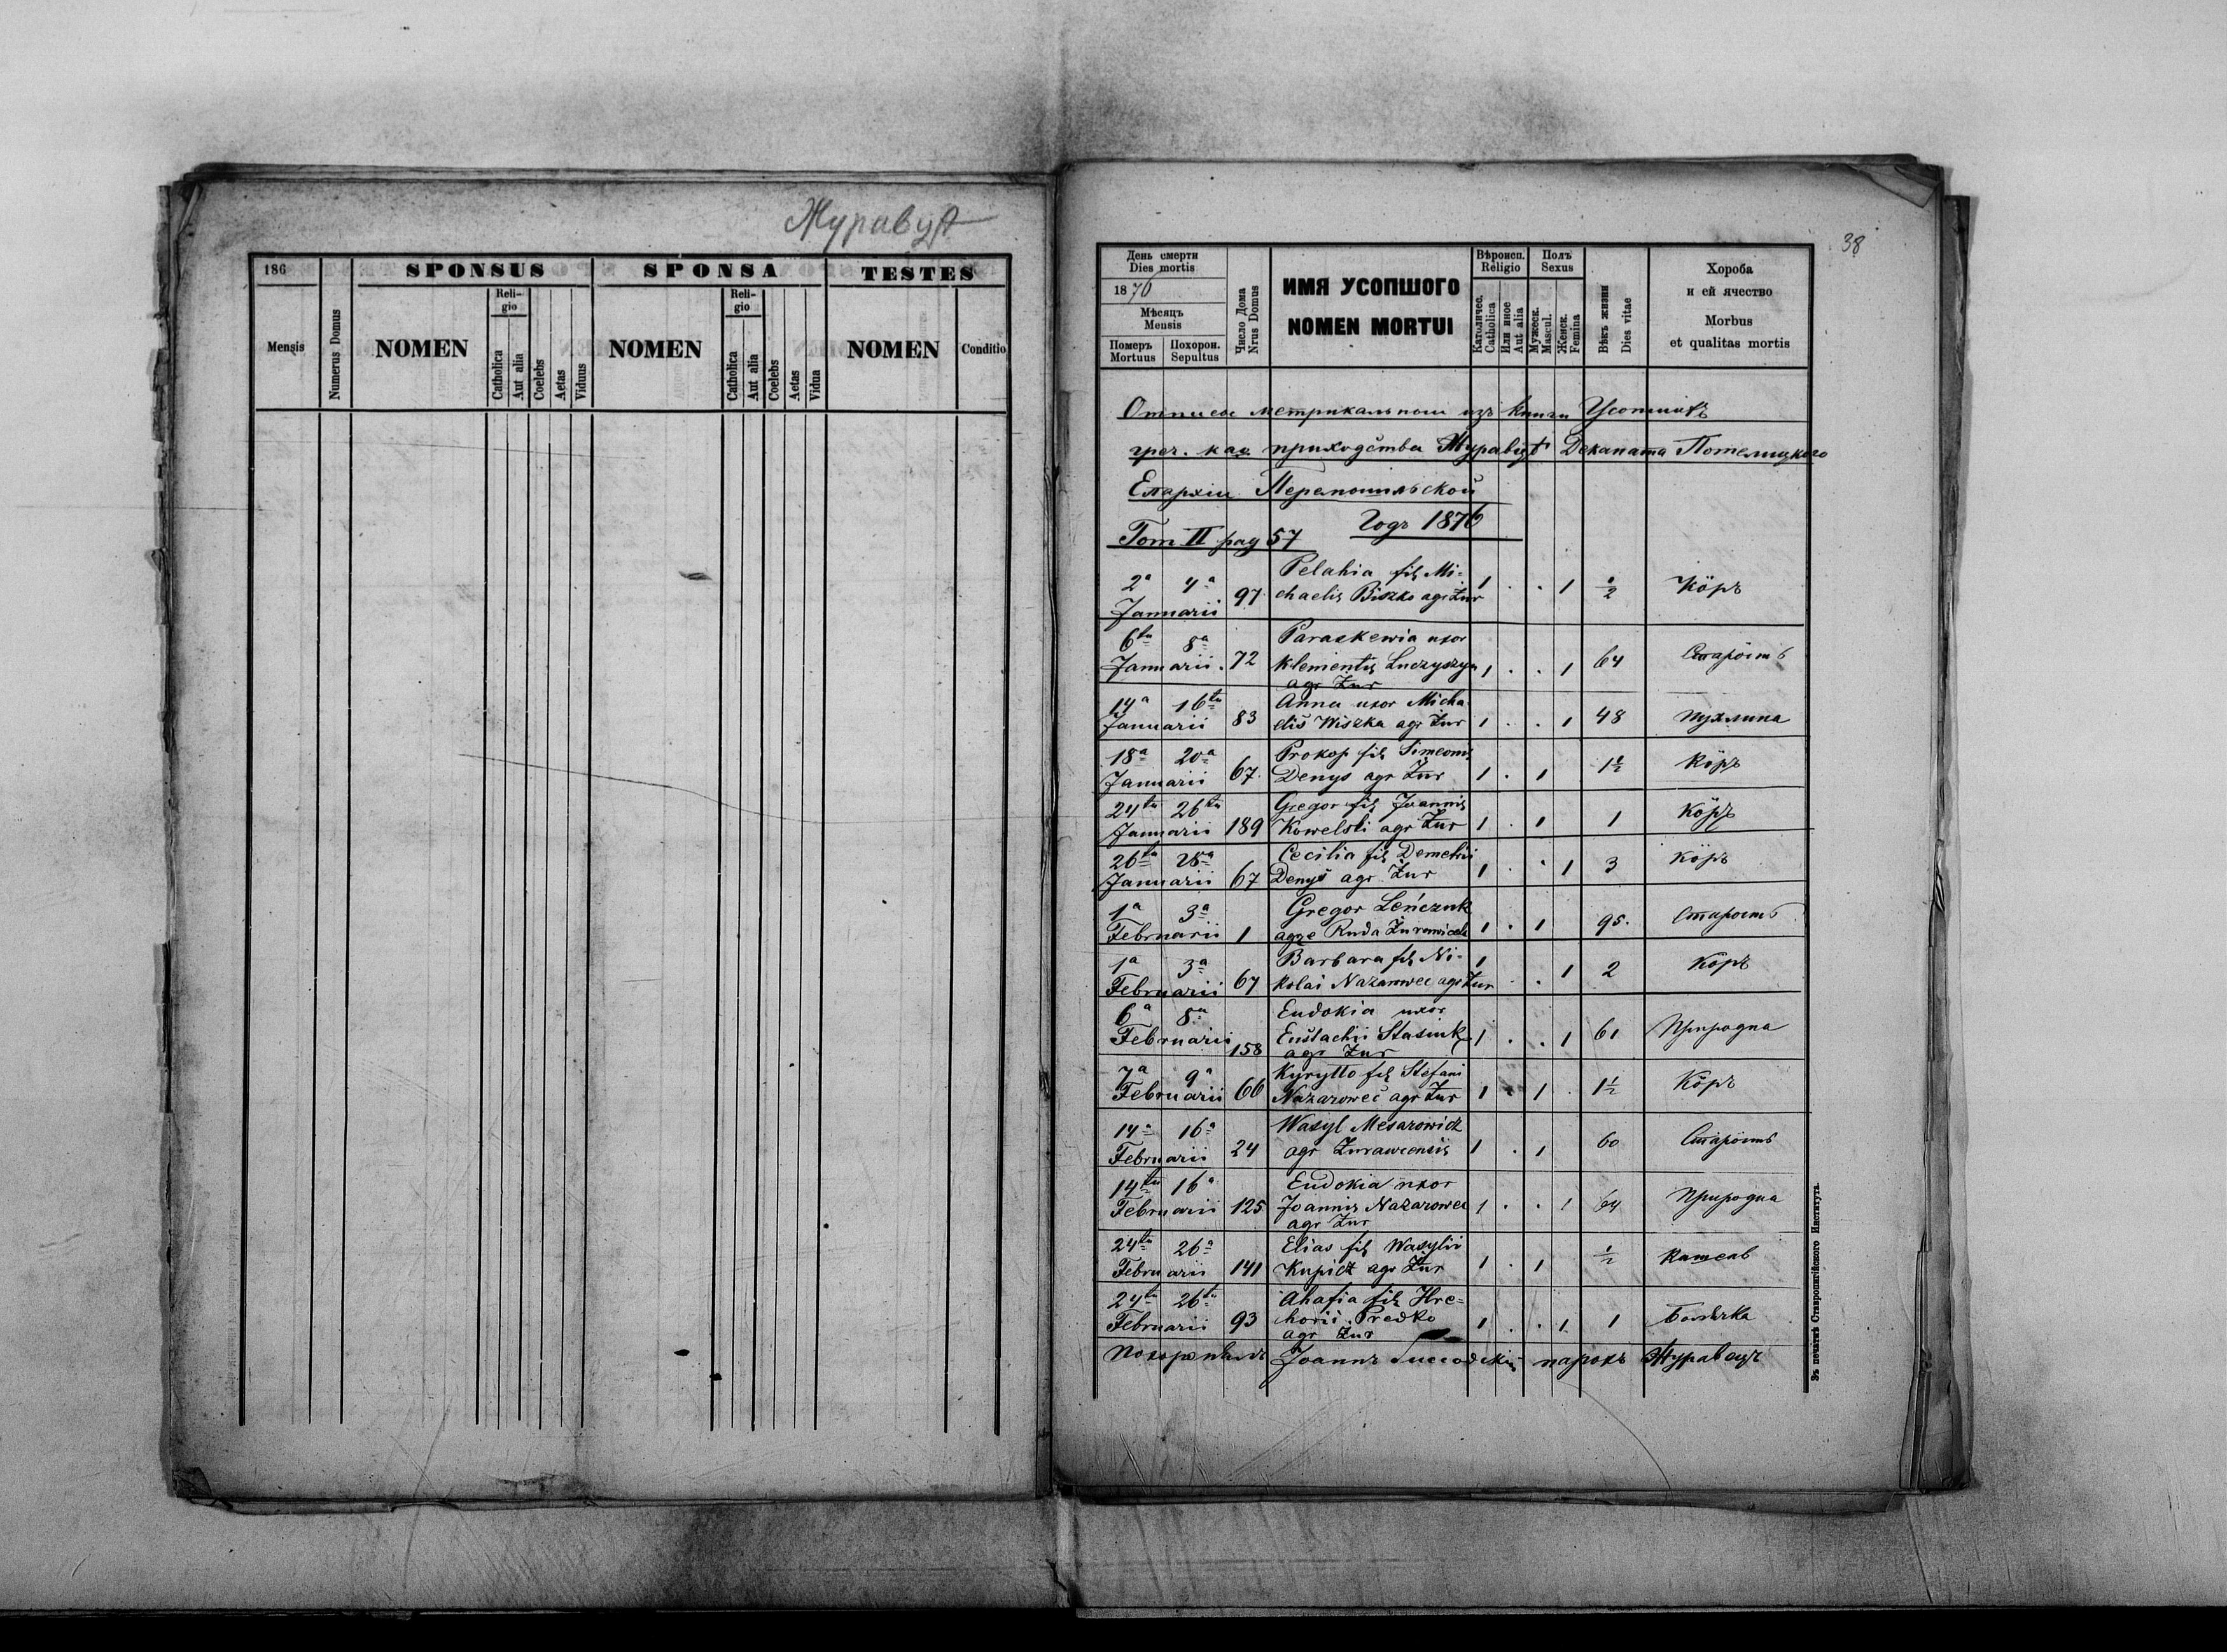 Журавцѣ
186
SPONSUS
SPONSA
TESTES
Mensis
Numerus Domus
NOMEN
Reli-
gio
Catholica
Aut alia
Coelebs
Aetas
Viduus
NOMEN
Reli-
gio
Catholica
Aut alia
Coelebs
Aetas
Vidua
NOMEN
Conditio
38
День смерти
Dies mortis
1876
Мѣсяцъ
Mensis
Померъ
Mortuus
Похорон.
Sepultus
Число Дома
Nrus Domus
ИМЯ УСОПШОГО
NOMEN MORTUI
Вѣроисп.
Religio
Католичес.
Catholica
Или иное
Aut alia
Полъ
Sexus
Мужеск.
Mascul.
Женск.
Femina
Вѣкъ жизни
Dies vitae
Хороба
и ей ячество
Morbus
et qualitas mortis
Отписъ метрикальный изъ книги Усопшихъ
греч. кат. приходства Журавцѣ Деканата Потелицкого
Епархіи Перемышльской
Годъ 1876
Tom II pag 57
2a 4a Januarii 97 Pelahia fil Mi-
chaelis Biszko agr Żur 1 . . 1 ½ Кöръ
6ta 8a Januarii 72 Paraskewia uxor
Klementis Luczyszyn
agr Żur 1 . . 1 64 Старость
14a 16ta Januarii 83 Anna uxor Micha
elis Wiszka agr Żur 1 . . 1 48 пухлина
18a 20a Januarii 67 Prokop fil Simeonis
Denys agr Żur 1 . 1 1½ Кöръ
24ta 26ta Januarii 189 Gregor fil Joannis
Kowelski agr Żur 1 . 1 1 Кöръ
26ta 28a Januarii 67 Cecilia fil Demetrii
Denys agr Żur 1 . . 1 3 Кöръ
1a 3a Februarii 1 Gregor Leńczuk
agre Ruda Żurawiecka 1 . 1 95. Старость
1a 3a Februarii 67 Barbara fil Ni-
kolai Nazarowec agr Żur 1 . . 1 2 Кöръ
6a 8a Februarii 158 Eudokia uxor
Eustachii Stasiuk
agr Żur 1 . . 1 61 Природна
7a 9a Februarii 66 Kyryłło fil Stefani
Nazarowec agr Żur 1 . 1 . 1½ Кöръ
14a 16a Februarii 24 Wasyl Mesarowicz
agr Żurawcensis 1 . 1 60 Старöсть
14ta 16a Februarii 125 Eudokia uxor
Joannis Nazarowec
agr Żur 1 . . 1 64 Природна
24ta 26a Februarii 141 Elias fil Wasylii
Kupicz agr Żur 1 . 1 ½ Кашель
24ta 26ta Februarii 93 Ahafia fil Hre-
horii Predko
agr Żur 1 . . 1 1 Болячка
Іоаннъ парохъ Журавцѣ
Зъ печатнѣ Ставропигійского Института.